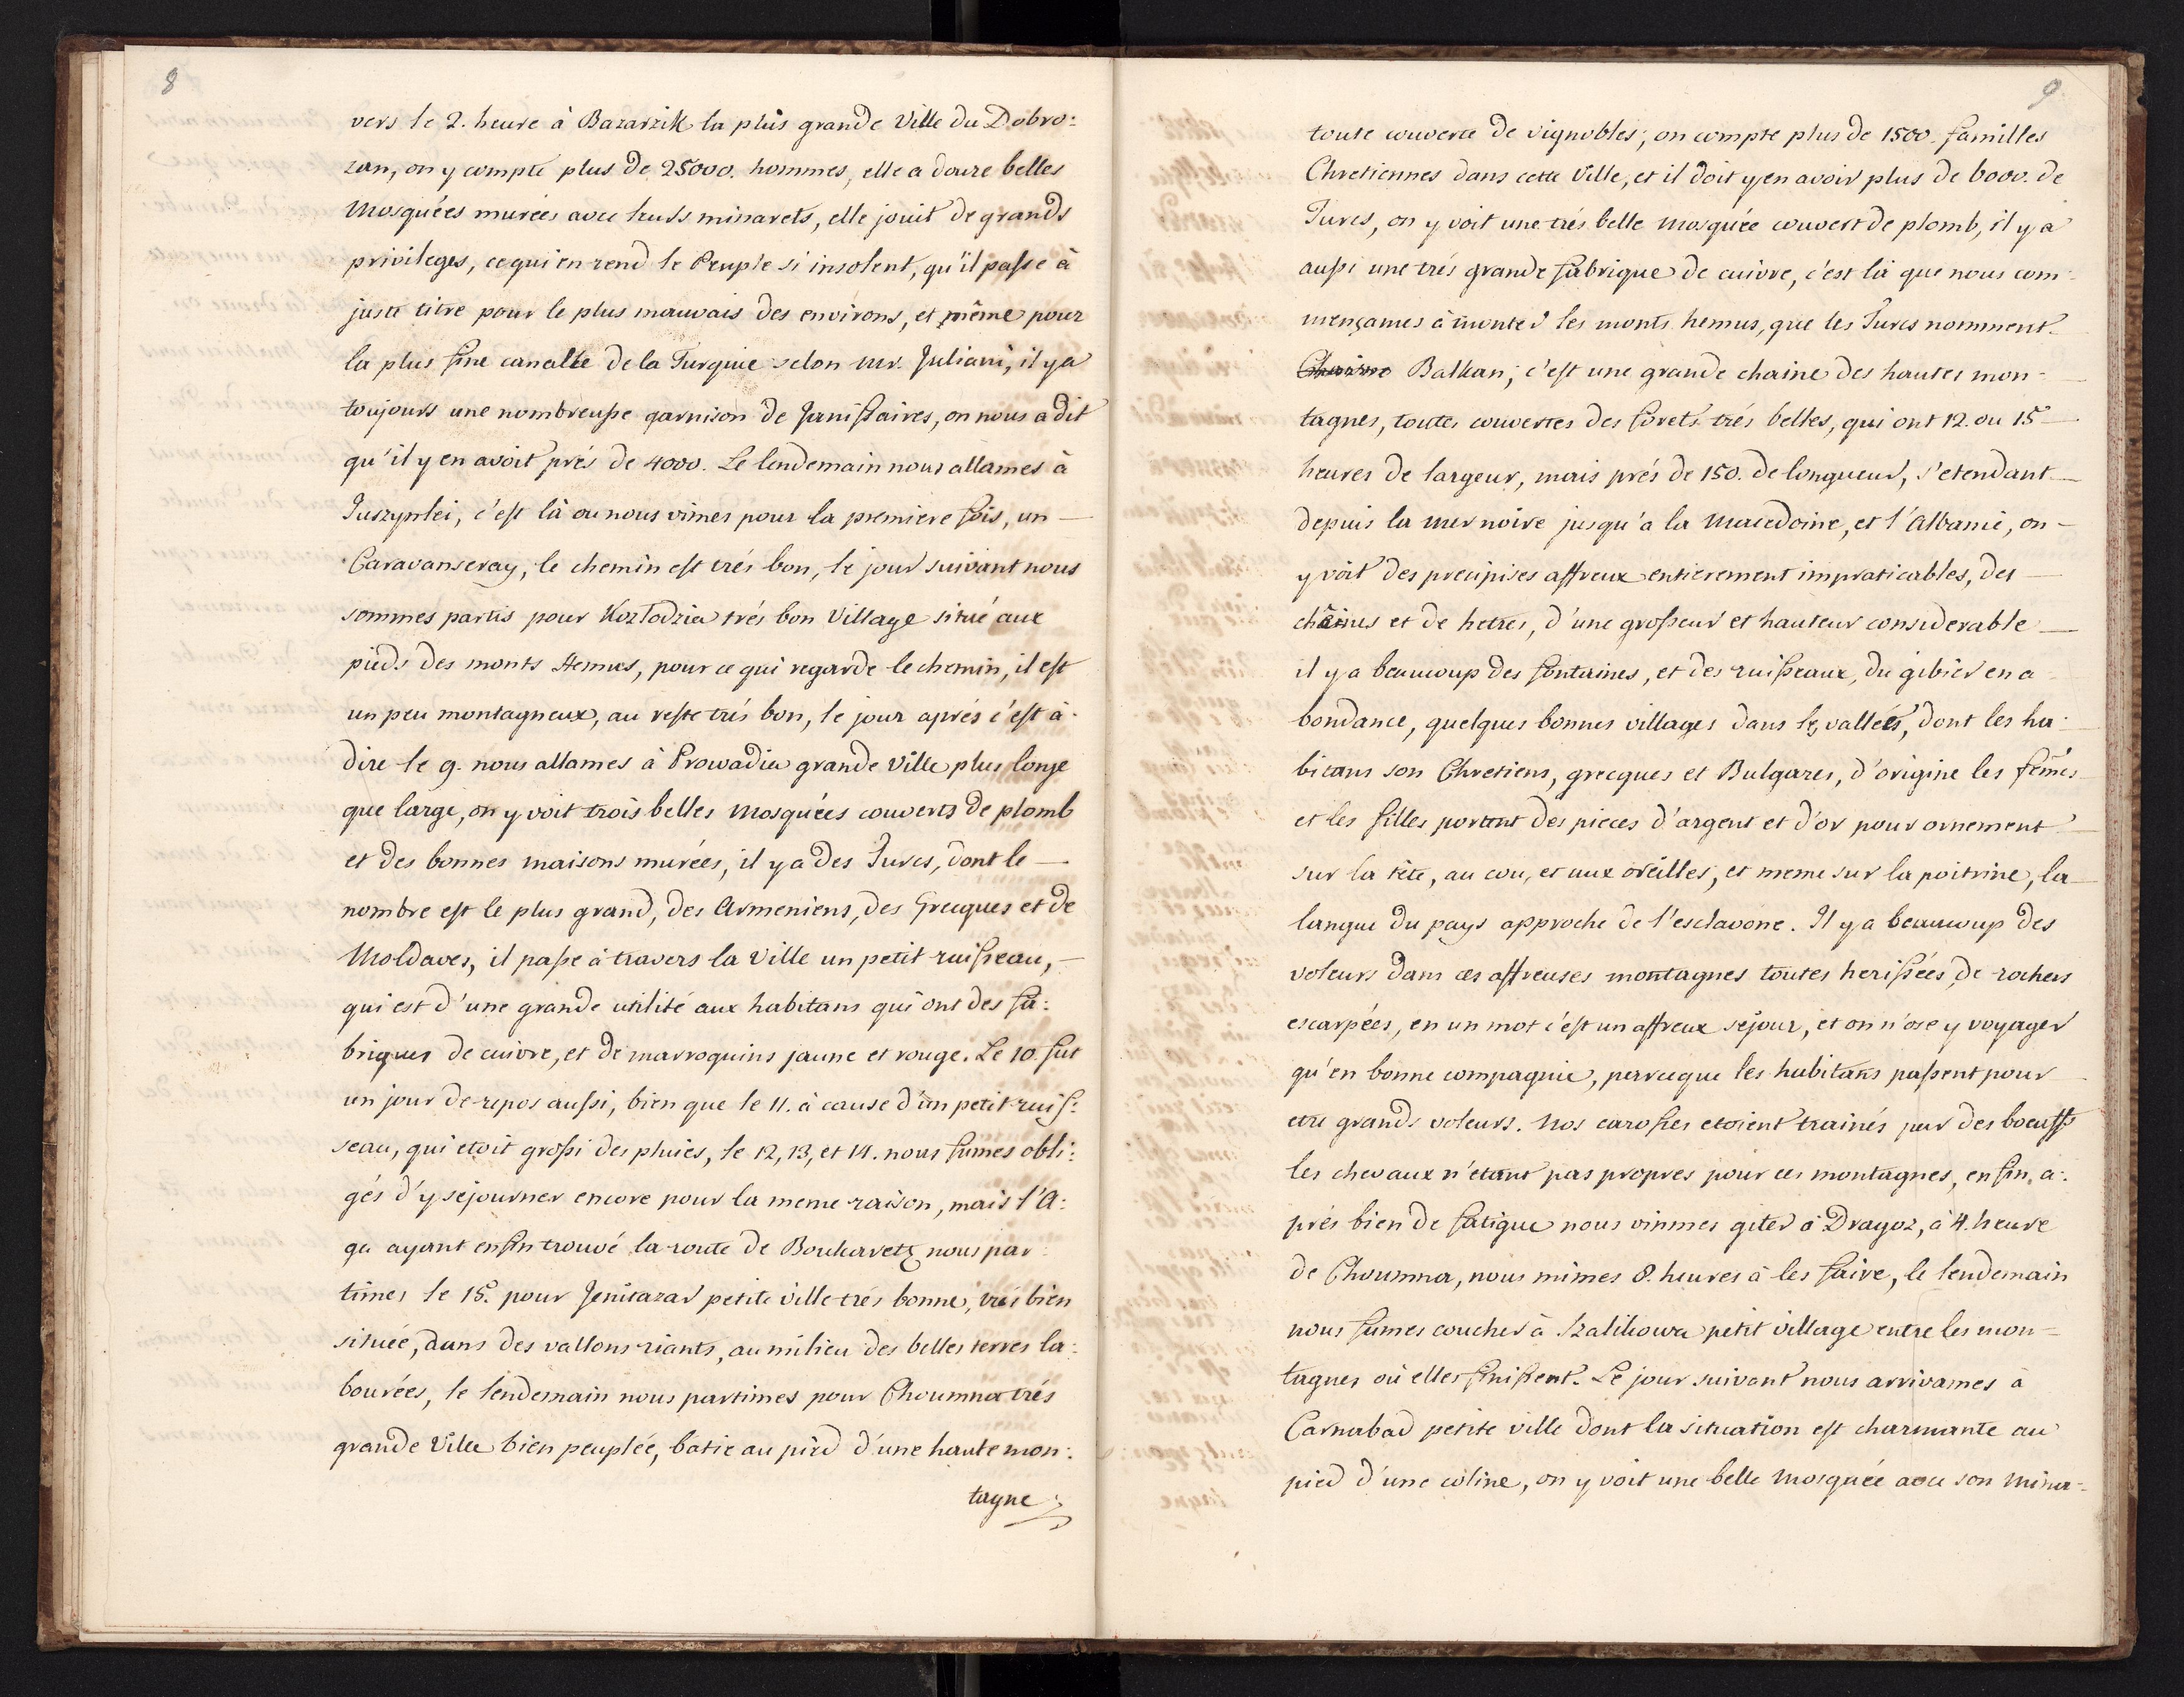 8
vers le 2. heure à Bazarzik la plus grande Ville du Dobro:
zan, on y compte plus de 25000. hommes, elle a douze belles
Mosquées murées avec leurs minarets, elle jouit de grands
privileges, ce qui en rend le Peuple si insolent, qu'il passe à
juste titre pour le plus mauvais des environs, et même pour
la plus fine canallie de la Turquie selon Mr. Juliani, il y a
toujours une nombreusse garnison de Janissaires, on nous a dit
qu'il y en avoit prés de 4000. Le lendemain nous allames à
Juszynlei, c'est là ou nous vimes pour la premiere fois, un —
Caravanseray, le chemin est trés bon, le jour suivant nous
sommes partis pour Kozlodzia trés bon Village situé aux
pieds des monts Hemus, pour ce qui regarde le chemin, il est
un peu montagneux, au reste trés bon, le jour aprés c'est à
dire le 9. nous allames à Prowadia grande Ville plus longe
que large, on y voit trois belles Mosquées couverts de plomb
et des bonnes maisons murées, il y a des Turcs, dont le —
nombre est le plus grand, des Armeniens, des Grecques et de
Moldaves, il passe à travers la Ville un petit ruisseau, —
qui est d'une grande utilité aux habitans qui ont des fa:
briques de cuivre, et de marroquins jaune et rouge. Le 10. fut
un jour de repos aussi, bien que le 11. à cause d'un petit ruis:
seau, qui etoit grossi des pluies, le 12, 13, et 14. nous fumes obli:
gés d'y sejourner encore pour la meme raison, mais l'A:
ga ayant enfin trouvé la route de Boukaretz nous par
times le 15. pour Jenitazar petite ville trés bonne, trés bien
située, dans des vallons riants, au milieu des belles terres la:
bourées, le lendemain nous partimes pour Choumna trés
grande Ville bien peuplée, batie au pied d'une haute mon:
tagne
9
toute couverte de vignobles; on compte plus de 1500. familles
Chretiennes dans cette Ville, et il doit y en avoir plus de 6000. de
Turcs, on y voit une trés belle Mosquée couvert de plomb, il y a
aussi une trés grande fabrique de cuivre, c'est là que nous com:
mençames à monter les monts hemus, que les Turcs nomment
Balkan; c'est une grande chaine des hautes mon-
tagnes, toutes couvertes des forets trés belles, qui ont 12. ou 15 —
heures de largeur, mais prés de 150. de longueur, s'etendant —
depuis la mer noire jusqu'a la Macedoine, et l'Albanie, on —
y voit des precipises affreux entierement impraticables, des —
chênes et de hetres, d'une grosseur et hauteur considerable —
il y a beaucoup des fontaines, et des ruisseaux, du gibier en a
bondance, quelques bonnes villages dans les vallées, dont les ha:
bitans son Chretiens, grecques et Bulgares, d'origine les fem̄es
et les filles portent des pieces d'argent et d'or pour ornement
sur la tête, au cou, et aux oreilles, et meme sur la poitrine, la
langue du pays approche de l'esclavone. Il y a beaucoup des
voleurs dans ces affreuses montagnes toutes herissées, de rochers
escarpées, en un mot c'est un affreux sejour, et on n'ose y voyager
qu'en bonne compagnie, parceque les habitans passent pour
etre grands voleurs. Nos carosses etoient trainés par des boeuffs
les chevaux n'etant pas propres pour ces montagnes, enfin, a:
prés bien de fatigue nous vinmes giter à Dragoz, à 4. heure
de Choumna, nous mimes 8. heures à les faire, le lendemain
nous fumes coucher à Szalikowa petit village entre les mon-
tagnes où elles finissent. Le jour suivant nous arrivames à
Carnabad petite ville dont la situation est charmante au
pied d'une coline, on y voit une belle Mosquée avec son Mina-